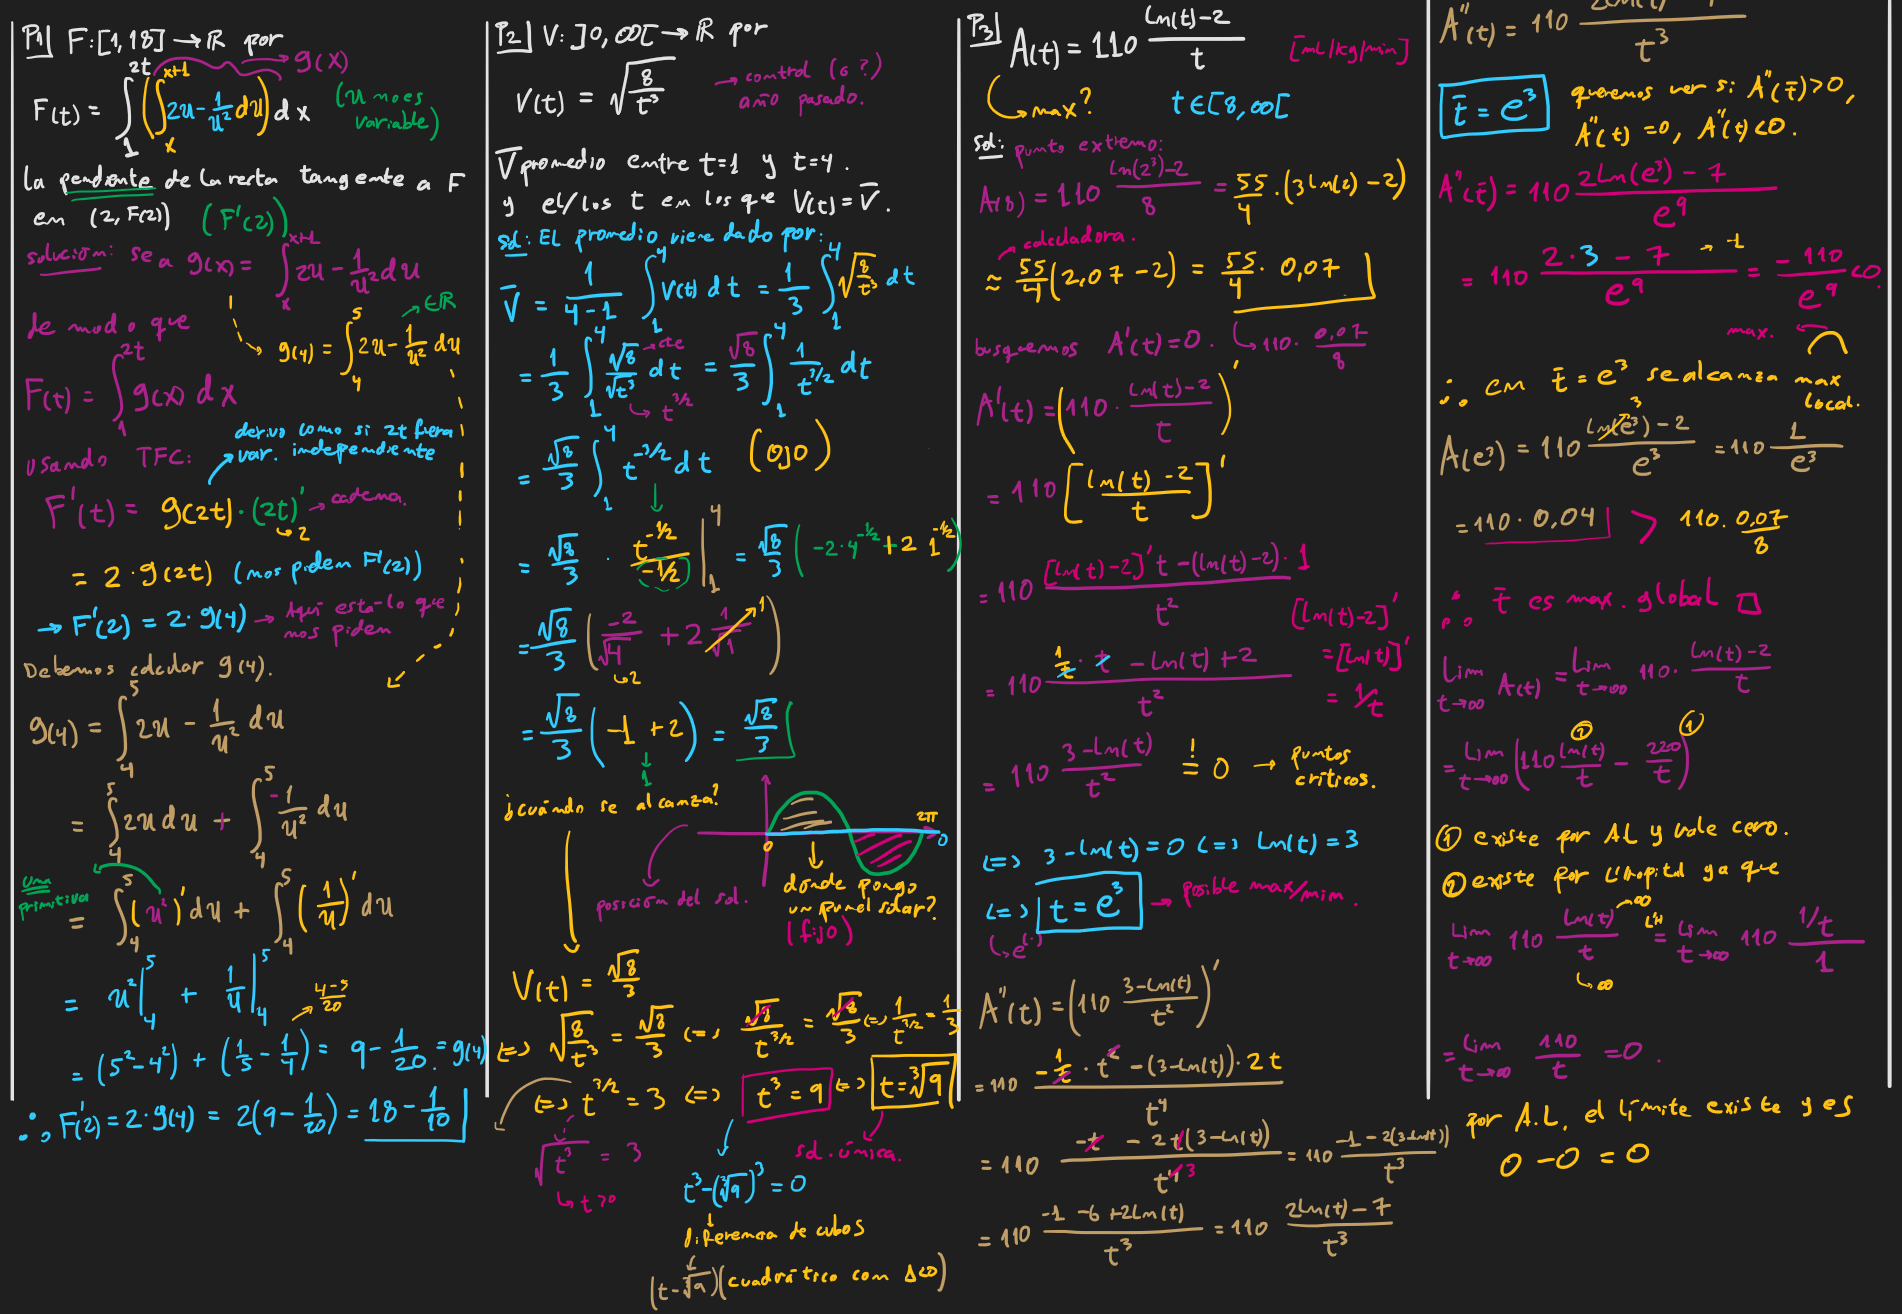 P1] F: [1,18] → ℝ por
F(t) = ∫_1^{2t} (∫_x^{x+1} 2u - 1/u² du) dx → g(x) (u no es variable)
La pendiente de la recta tangente a F
en (2, F(2)) (F'(2))
solución: sea g(x) = ∫_x^{x+1} 2u - 1/u² du
de modo que
g(4) = ∫_4^5 2u - 1/u² du → ∈ ℝ
F(t) = ∫_1^{2t} g(x) dx
usando TFC:
derivo como si 2t fuera
var. independiente
F'(t) = g(2t) · (2t)' → cadena.
↪ 2
= 2 · g(2t) (nos piden F'(2))
→ F'(2) = 2 · g(4) → Aquí está lo que
nos piden
Debemos calcular g(4).
g(4) = ∫_4^5 2u - 1/u² du
= ∫_4^5 2u du + ∫_4^5 -1/u² du
una
primitiva
= ∫_4^5 (u²)' du + ∫_4^5 (1/u)' du
= u² |_4^5 + 1/u |_4^5
→ (4-5)/20
= (5² - 4²) + (1/5 - 1/4) = 9 - 1/20 = g(4)
∴ F'(2) = 2 · g(4) = 2(9 - 1/20) = 18 - 1/10
P2] V: ]0, ∞[ → ℝ por
V(t) = √(8/t³) → control (6?)
año pasado.
V̄ promedio entre t=1 y t=4.
y el/los t en los que V(t) = V̄.
sol: El promedio viene dado por:
V̄ = 1/(4-1) ∫_1^4 V(t) dt = 1/3 ∫_1^4 √(8/t³) dt
= 1/3 ∫_1^4 √8/√t³ dt = √8/3 ∫_1^4 1/t^{3/2} dt
→ cte
↪ t^{3/2}
= √8/3 ∫_1^4 t^{-3/2} dt (ojo)
= √8/3 · t^{-1/2}/(-1/2) |_1^4 = √8/3 (-2·4^{-1/2} + 2 1^{-1/2})
= √8/3 (-2/√4 + 2 1/√1) 1
↪ 2
= √8/3 (-1 + 2) = √8/3
1
¿cuándo se alcanza?
2π
0
0
posición del sol.
dónde pongo
un panel solar?
(fijo)
V(t) = √8/3
⇔ √(8/t³) = √8/3 ⇔ √8/t^{3/2} = √8/3 ⇔ 1/t^{3/2} = 1/3
⇔ t^{3/2} = 3 ⇔ t³ = 9 ⇔ t = ∛9
√(t³) = 3
↪ t>0
sol. única.
t³ - (∛9)³ = 0
diferencia de cubos
(t - ∛9)(cuadrático con Δ<0)
P3] A(t) = 110 (ln(t)-2)/t [mL/kg/min]
↪ max? t ∈ [8, ∞[
sol: punto extremo:
A(8) = 110 (ln(2³)-2)/8 = 55/4 · (3 ln(2) - 2)
calculadora.
≈ 55/4 (2,07 - 2) = 55/4 · 0,07
↪ 110 · 0,07/8
busquemos A'(t) = 0.
A'(t) = (110 · (ln(t)-2)/t)'
= 110 [(ln(t)-2)/t]'
= 110 ([ln(t)-2]' t - (ln(t)-2) · 1)/t²
[ln(t)-2]'
= [ln(t)]'
= 1/t
= 110 (1/t · t - ln(t) + 2)/t²
= 110 (3 - ln(t))/t² =! 0 → puntos
críticos.
⇔ 3 - ln(t) = 0 ⇔ ln(t) = 3
⇔ t = e³ → posible max/min.
↪ e^{(·)}
A''(t) = (110 (3-ln(t))/t²)'
= 110 (-1/t · t² - (3-ln(t)) · 2t)/t⁴
= 110 (-t - 2t(3-ln(t)))/t⁴ 3 = 110 (-1 - 2(3-ln(t)))/t³
= 110 (-1 - 6 + 2ln(t))/t³ = 110 (2ln(t) - 7)/t³
t̄ = e³ queremos ver si A''(t̄) > 0,
A''(t) = 0, A''(t) < 0.
A''(t̄) = 110 (2ln(e³) - 7)/e⁹
= 110 (2·3 - 7)/e⁹ → -1 = -110/e⁹ < 0.
max.
∴ en t̄ = e³ se alcanza max
local.
A(e³) = 110 (ln(e³) - 2)/e³ 3 = 110 1/e³
= 110 · 0,04 > 110 · 0,07/8
∴ t̄ es max. global □
Lim_{t→∞} A(t) = Lim_{t→∞} 110 · (ln(t)-2)/t
= Lim_{t→∞} (110 ln(t)/t - 220/t) ② ①
① existe por AL y vale cero.
② existe por L'Hopital ya que
Lim_{t→∞} 110 ln(t)/t =^{L'H} Lim_{t→∞} 110 (1/t)/1
→ ∞
↪ ∞
= Lim_{t→∞} 110/t = 0.
por A.L, el límite existe y es
0 - 0 = 0